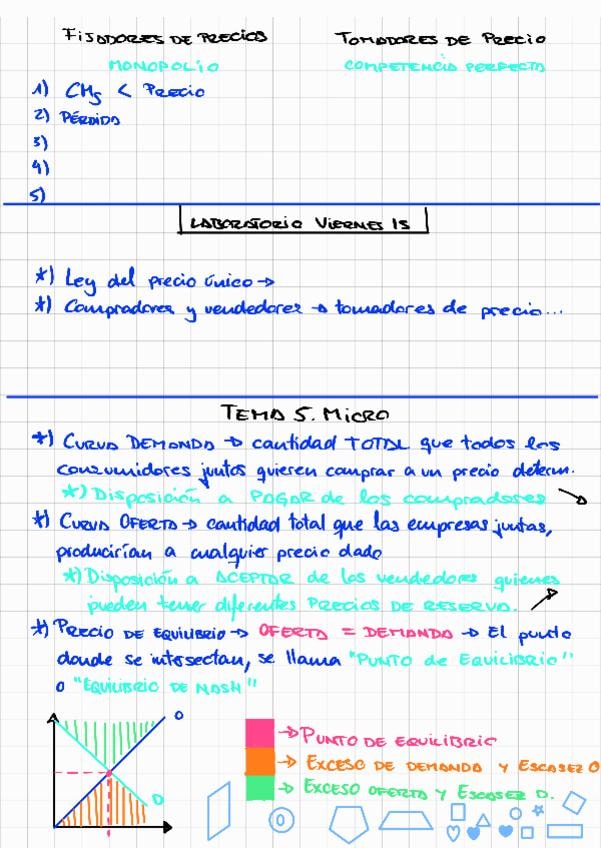 FIJADORES DE PRECIOS TOMADORES DE PRECIO
MONOPOLIO COMPETENCIA PERFECTA
1) CMg < PRECIO
2) PÉRDIDA
3)
4)
5)
LABORATORIO VIERNES 15
*) Ley del precio único →
*) Compradores y vendedores → tomadores de precio...
TEMA 5. MICRO
*) CURVA DEMANDA → cantidad TOTAL que todos los
consumidores juntos quieren comprar a un precio determ.
*) Disposición a PAGAR de los compradores
*) CURVA OFERTA → cantidad total que las empresas juntas,
producirían a cualquier precio dado
*) Disposición a ACEPTAR de los vendedores quienes
pueden tener diferentes PRECIOS DE RESERVA.
*) PRECIO DE EQUILIBRIO → OFERTA = DEMANDA → El punto
donde se intersectan, se llama "PUNTO de EQUILIBRIO"
o "EQUILIBRIO DE NASH"
O
→ PUNTO DE EQUILIBRIO
→ EXCESO DE DEMANDA Y ESCASEZ O
→ EXCESO OFERTA Y ESCASEZ D.
D